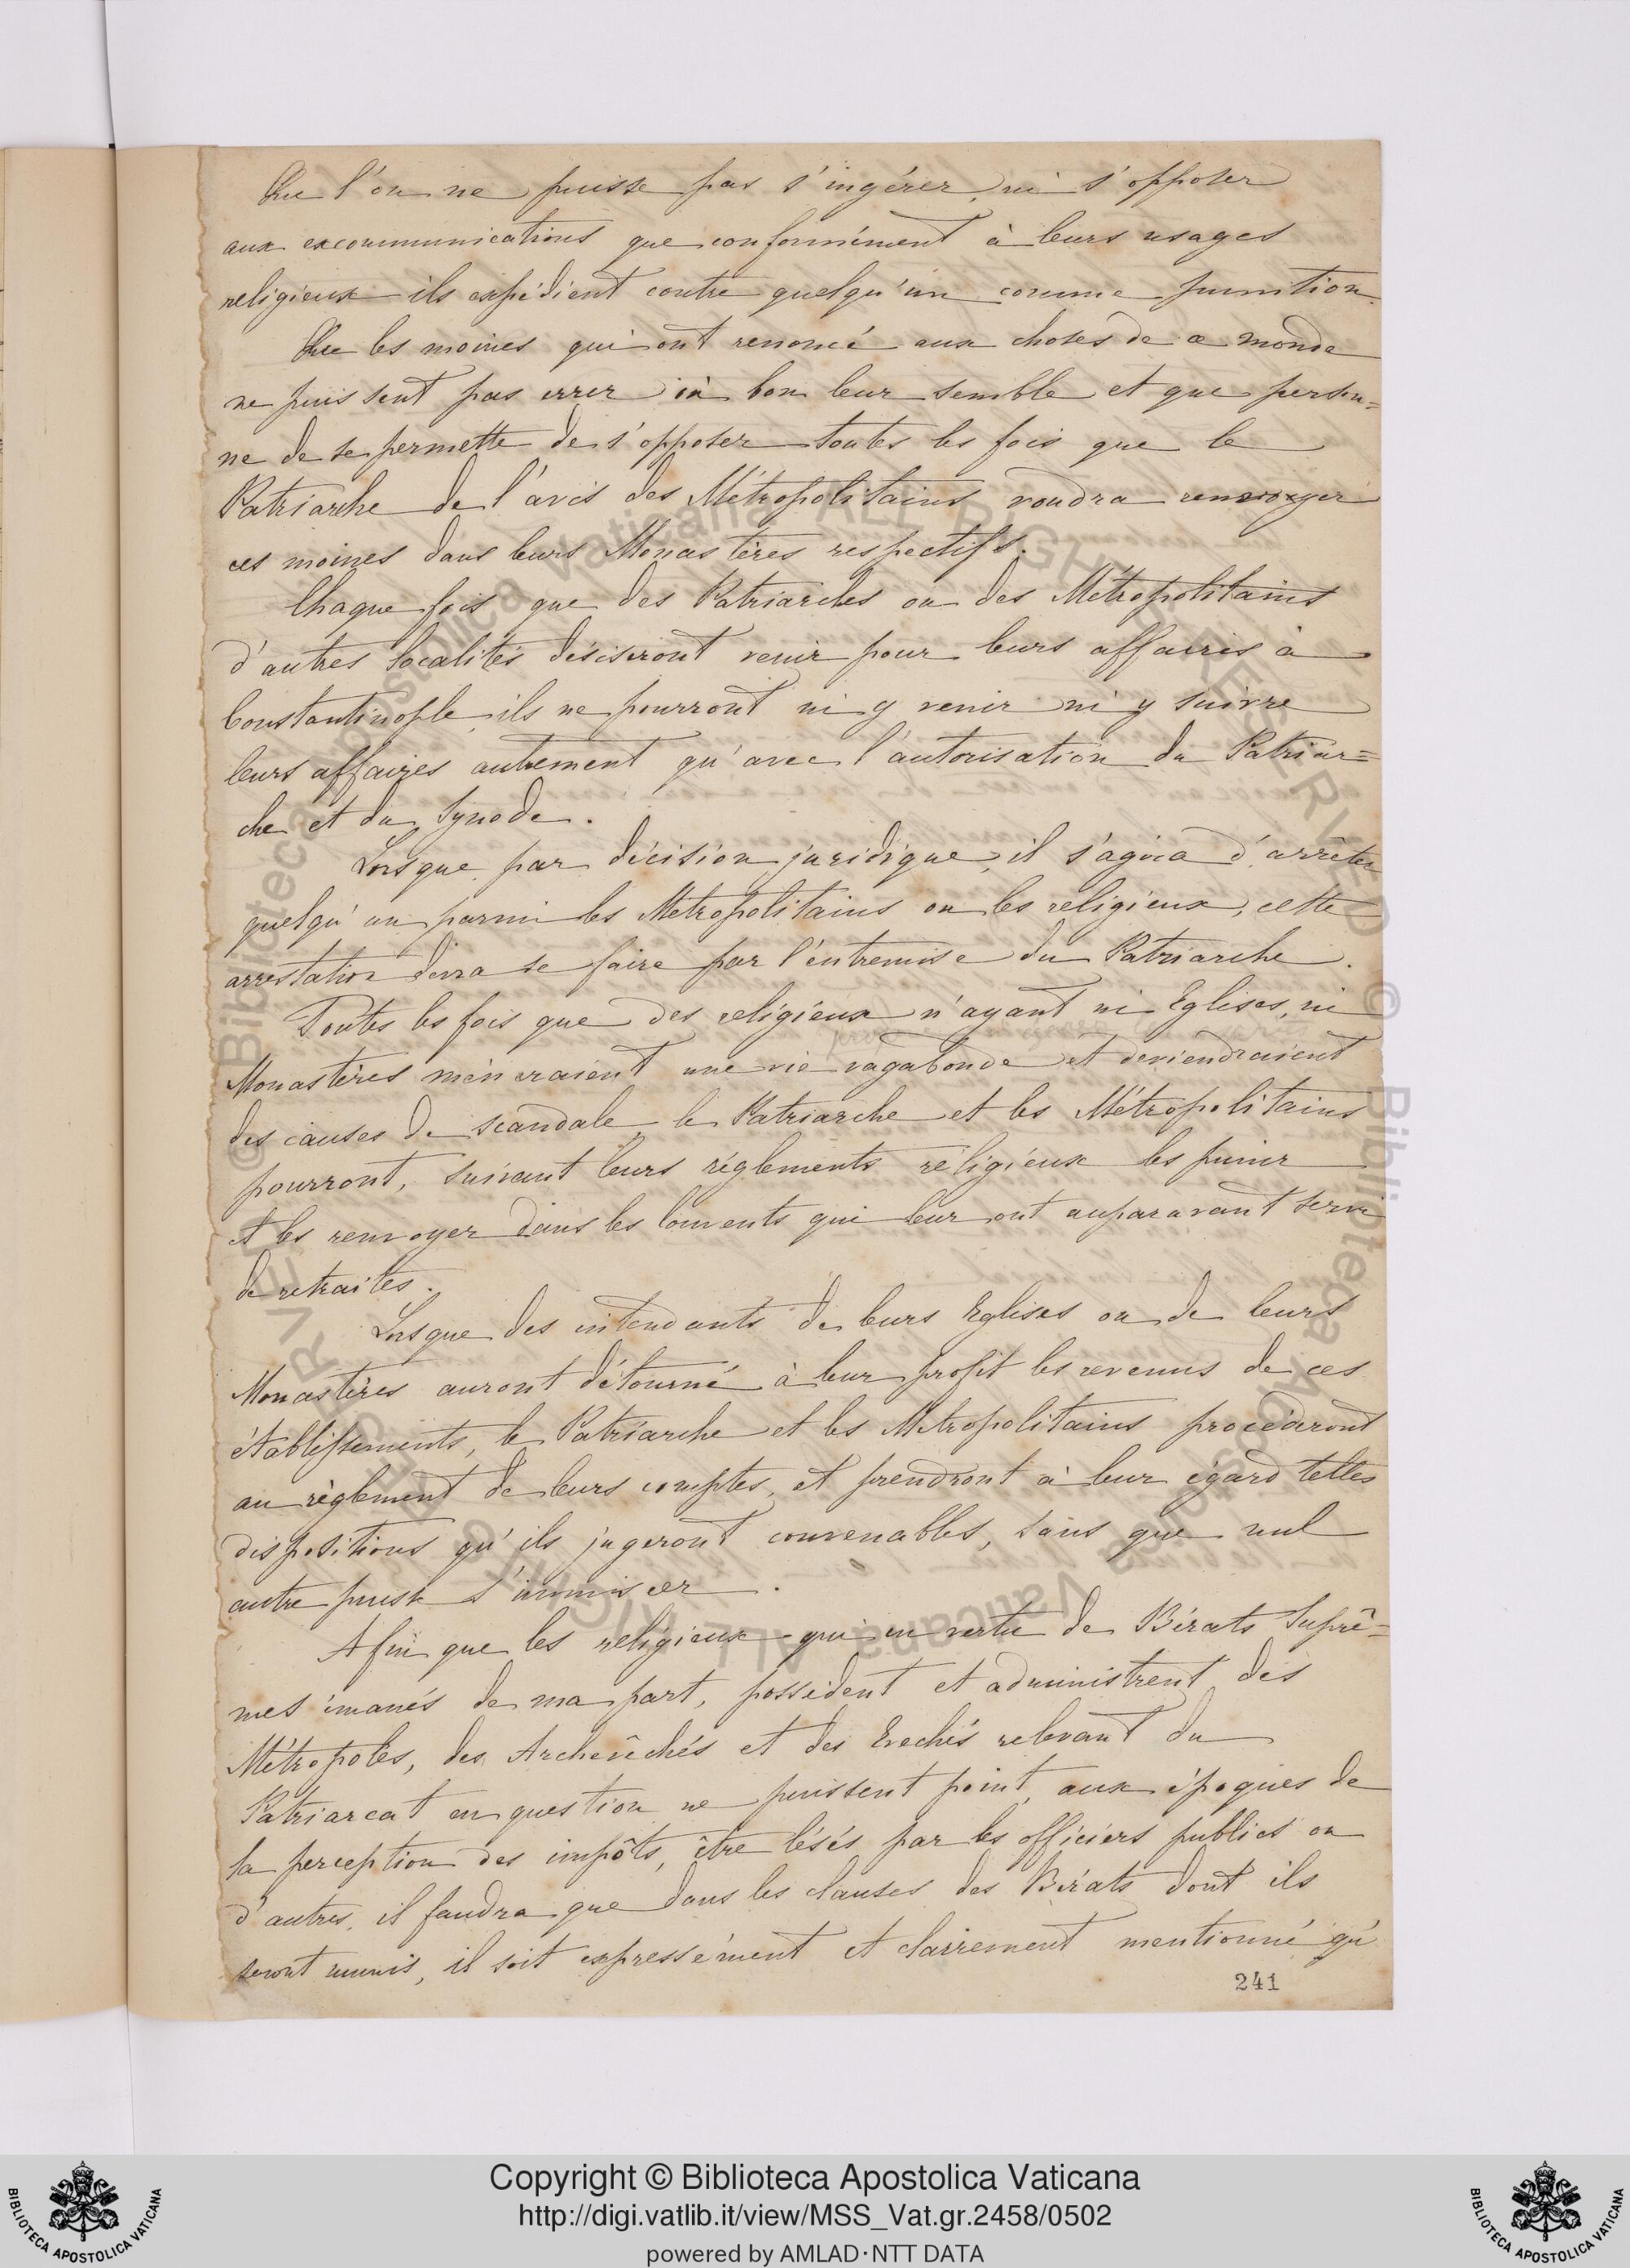 Que l'on ne puisse pas s'ingérer, ni s'opposer
aux excommunications que conformément à leurs usages
religieux ils expédient contre quelqu'un comme punition.
Que les moines qui ont renoncé aux choses de ce monde
ne puissent pas errer où bon leur semble et que person=
ne de se permette de s'opposer toutes les fois que le
Patriarche de l'avis des Métropolitains voudra renvoyer
ces moines dans leurs Monastères respectifs.
Chaque fois que des Patriarches ou des Métropolitains
d'autres localités désireront venir pour leurs affaires à
Constantinople, ils ne pourront ni y venir ni y suivre
leurs affaires autrement qu'avec l'autorisation du Patriar=
che et du Synode.
Lorsque par décision juridique, il s'agira d'arrêter
quelqu'un parmi les Métropolitains ou les religieux, cette
arrestation devra se faire par l'entremise du Patriarche.
Toutes les fois que des religieux n'ayant ni Eglises, ni
Monastères mèneraient une vie vagabonde et deviendraient
des causes de scandale, le Patriarche et les Métropolitains
pourront, suivant leurs réglements réligieux les punir
et les renvoyer dans les Couvents qui leur ont auparavant servi
de retraites.
Lorsque des intendants de leurs Eglises ou de leurs
Monastères auront détourné à leur profit les revenus de ces
établissements, le Patriarche et les Métropolitains procéderont
au règlement de leurs comptes, et prendront à leur égard telles
dispositions qu'ils jugeront convenables, sans que nul
autre puisse s'immiscer.
Afin que les religieux qui en vertu de Bérats Suprê=
mes émanés de ma part, possèdent et administrent des
Métropoles, des Archevêchés et des Evechés relevant du
Patriarcat en question ne puissent point, aux époques de
la perception des impôts, être lésés par les officiers publics ou
d'autres, il faudra que dans les clauses des Bérats dont ils
seront munis, il soit expressément et clairement mentionné qu'
241
© Biblioteca Apostolica Vaticana ALL RIGHTS RESERVED
© Biblioteca Apostolica Vaticana ALL RIGHTS RESERVED
Copyright © Biblioteca Apostolica Vaticana
http://digi.vatlib.it/view/MSS_Vat.gr.2458/0502
powered by AMLAD·NTT DATA
BIBLIOTECA APOSTOLICA VATICANA
BIBLIOTECA APOSTOLICA VATICANA